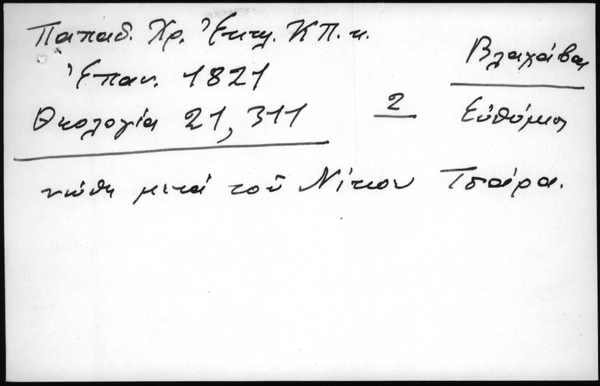 Παπαδ. Χρ. Ἐκκλ. ΚΠ. κ.
Ἐπαν. 1821
Θεολογία 21, 311
2
Βλαχάβα
Εὐθύμιος
μετά τοῦ Νίκου Τσάρα.